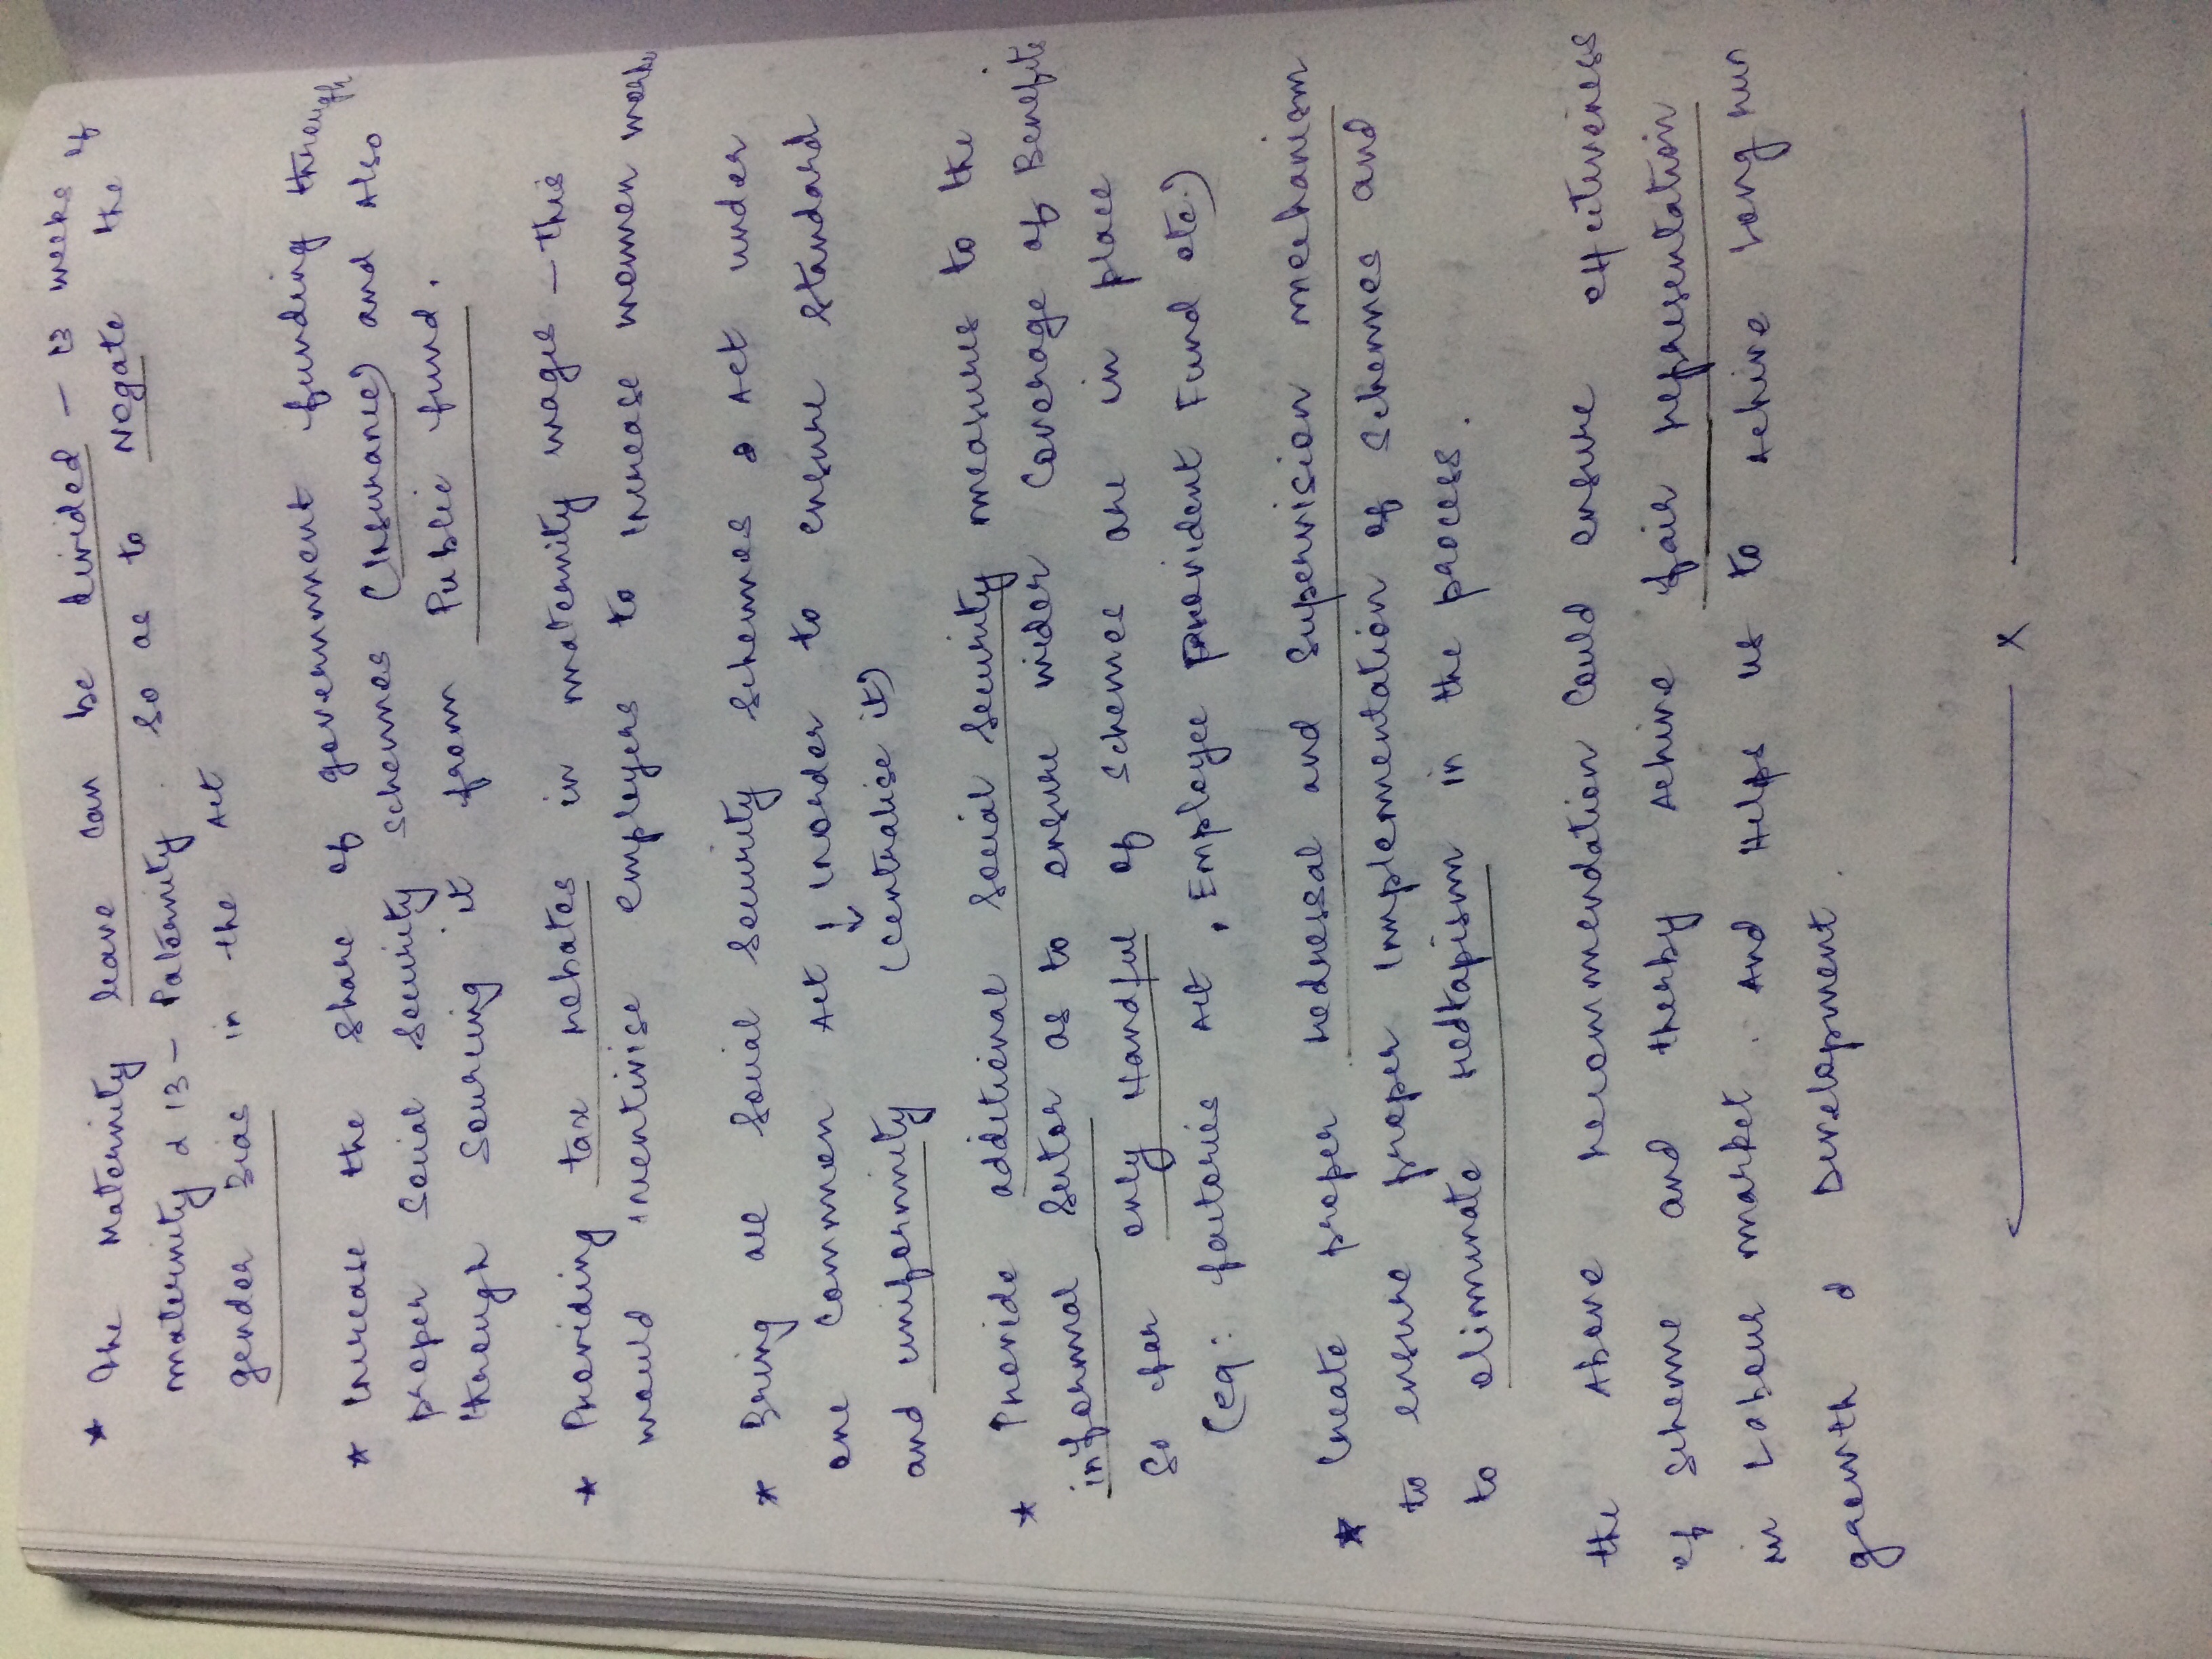 * The Maternity leave can be divided - 13 weeks of
maternity & 13 - Paternity. So as to Negate the
gender Bias in the Act
* Increase the share of government funding through
proper Social Security schemes (Insurance) and Also
through Sourcing it from Public fund.
* Providing tax rebates in maternity wages - this
would incentivise employers to increase women work
* Bring all Social Security Schemes & Act under
one Common Act inorder to ensure standard
and uniformity (centralise it)
* Provide additional Social Security measures to the
informal Sector as to ensure wider Coverage of Benefits
So far only Handful of schemes are in place
(eg: factories Act, Employee Provident Fund etc.)
* Create proper redressal and Supervision mechanism
to ensure proper Implementation of Schemes and
to eliminate Redtapism in the process.
the Above recommendation Could ensure effectiveness
of Scheme and therby Achive fair representation
in Labour market. And Helps us to Achive Long run
growth & Development.
x